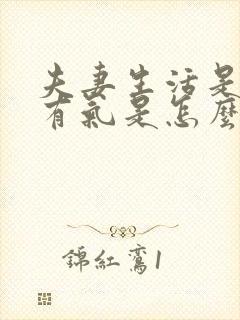 夫妻生活是
有氣是怎麼
錦紅鸞1